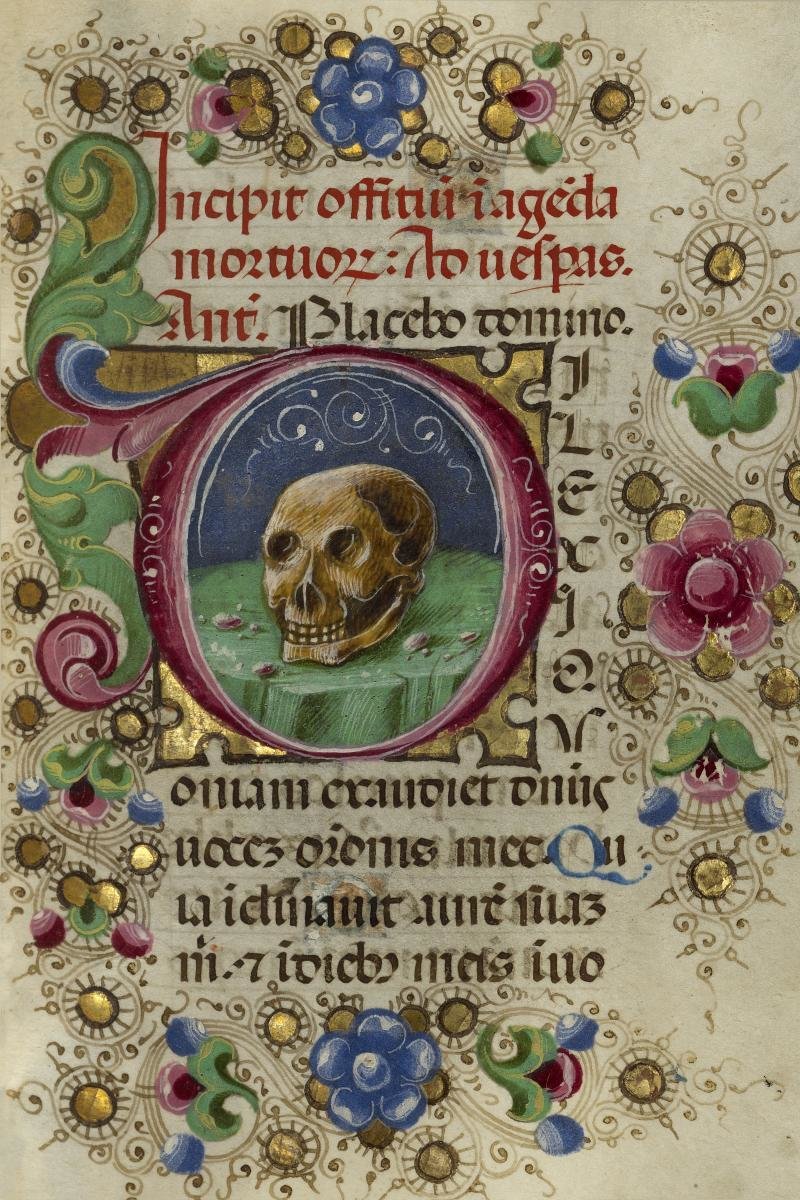 Incipit offitiū ī agēda
mortuorꝝ: Ad uesp̄as.
Ant̄. Placebo domino.
D
I
L
E
X
I
Q
V
oniam exaudiet dn̄s
uocez or̄onis mee. Qu
ia īclinauit aurē suaz
m̄. ⁊ ī dieb⁊ meis īuo